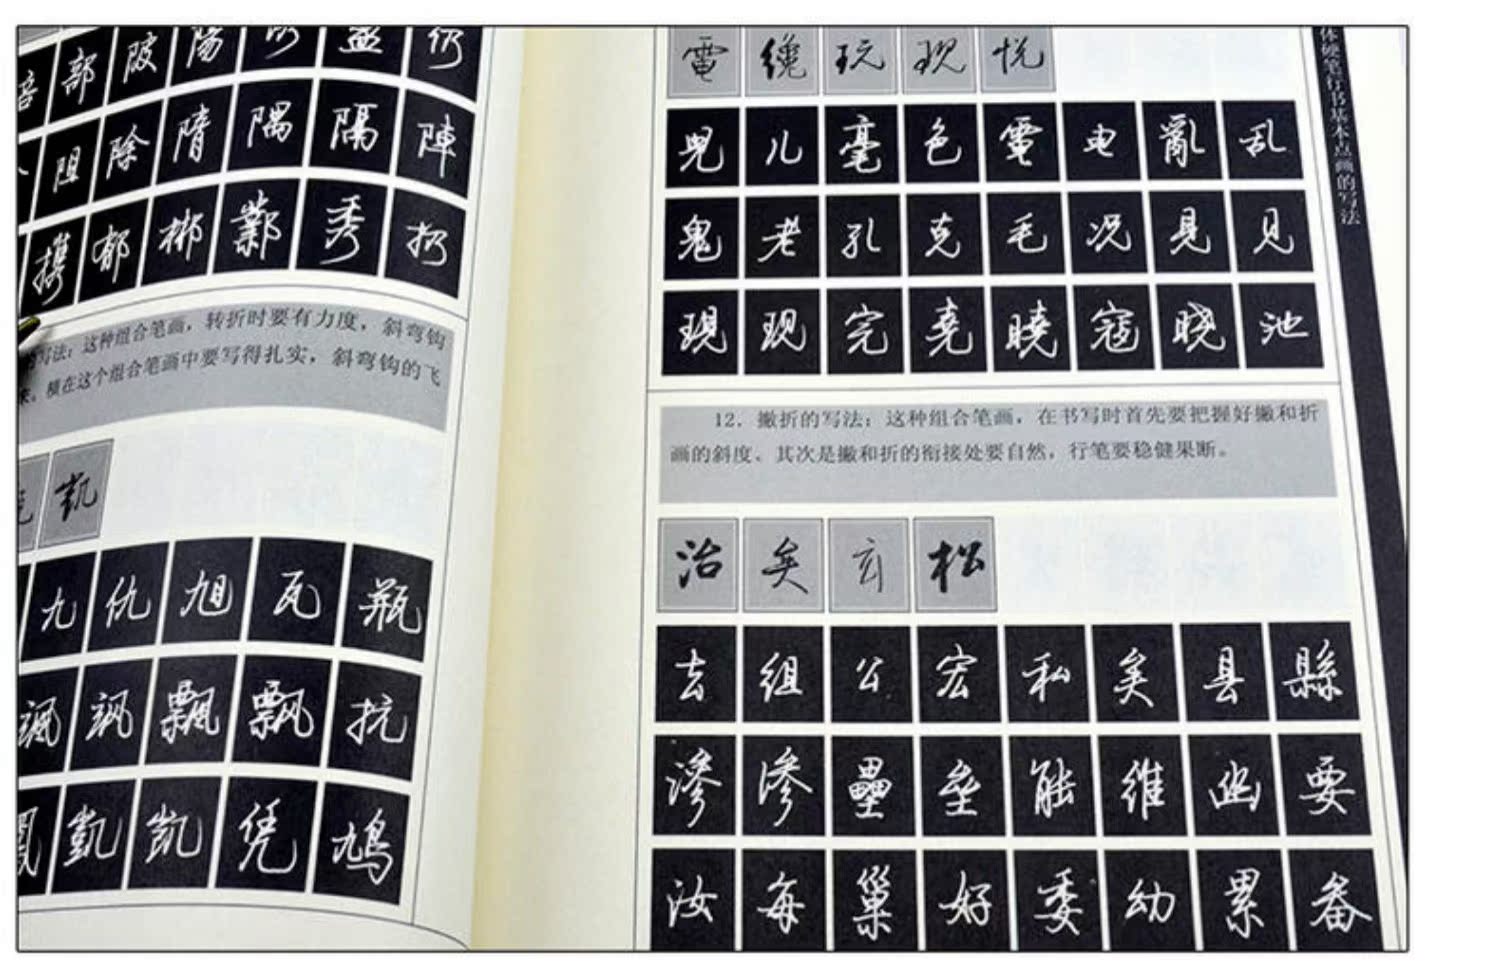 部 陂 陽 盔 仍
阻 除 隋 隅 隔 陣
携 郁 郴 鄴 秀 扔
写法：这种组合笔画，转折时要有力度，斜弯钩
来。横在这个组合笔画中要写得扎实，斜弯钩的飞
凱
九 仇 旭 瓦 瓶
飒 飄 飘 抗
凱 凯 凭 鸠
電 纔 玩 现 悦
兒 儿 毫 色 電 电 亂 乱
鬼 老 孔 克 毛 况 見 见
現 现 完 堯 曉 寇 晓 池
12. 撇折的写法：这种组合笔画，在书写时首先要把握好撇和折
画的斜度、其次是撇和折的衔接处要自然，行笔要稳健果断。
治 矣 玄 松
去 組 公 宏 私 矣 县 縣
滲 渗 壘 垒 能 維 幽 要
汝 每 巢 好 委 幼 累 备
体硬笔行书基本点画的写法